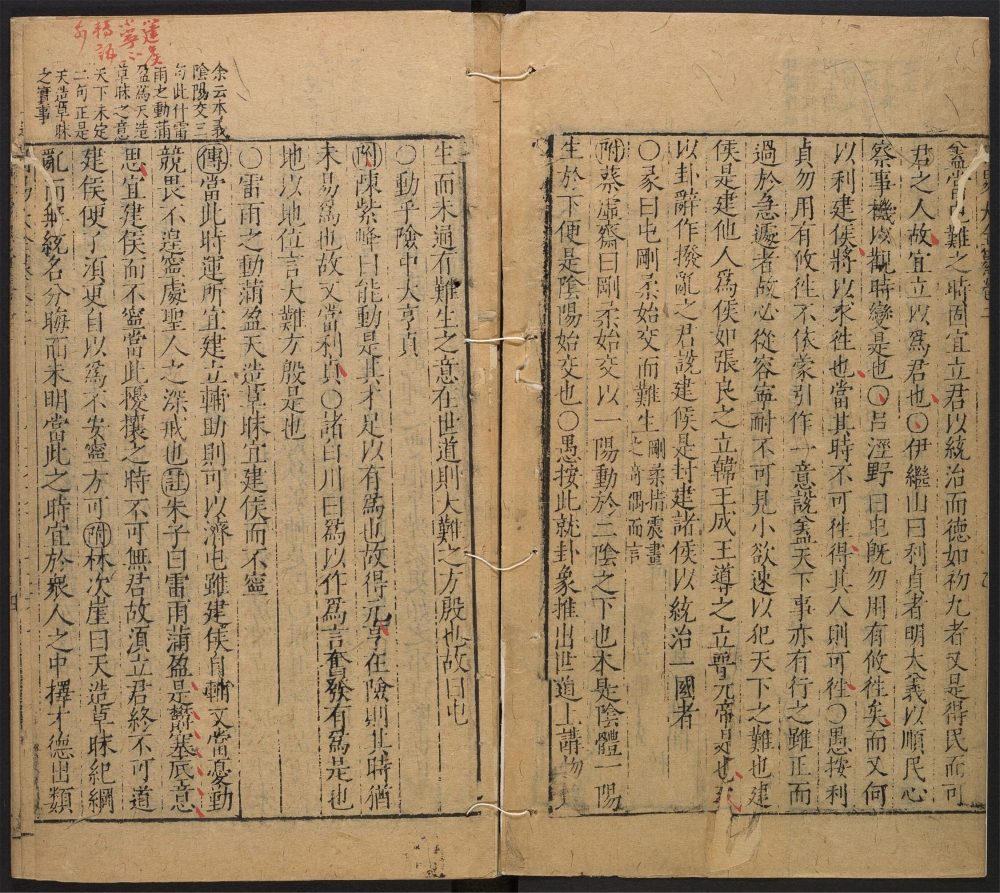 蓋當屯難之時固宜立君以統治而德如初九者又是得民而可
君之人故宜立以爲君也○伊繼山曰利貞者明大義以順民心
察事機以觀時變是也○呂涇野曰屯既勿用有攸徃矣而又何
以利建侯將以求徃也當其時不可徃得其人則可徃○愚按利
貞勿用有攸徃不依蒙引作一意說蓋天下事亦有行之雖正而
過於急遽者故必從容寧耐不可見小欲速以犯天下之難也建
侯是建他人爲侯如張良之立韓王成王導之立晉元帝是也
以卦辭作撥亂之君說建侯是封建諸侯以統治一國者
○彖曰屯剛柔始交而難生剛柔指震畫之奇偶而言
附蔡虛齋曰剛柔始交以一陽動於二陰之下也本是陰體一陽
生於下便是陰陽始交也○愚按此就卦象推出世道上講物
生而未通有難生之意在世道則大難之方殷也故曰屯
○動乎險中大亨貞
附陳紫峰曰能動是其才足以有爲也故得元亨在險則其時猶
未易爲也故又當利貞○諸白川曰爲以作爲言奮發有爲是也
地以地位言大難方殷是也
○雷雨之動滿盈天造草昧宜建侯而不寧
傳當此時運所宜建立輔助則可以濟屯雖建侯自輔又當憂勤
兢畏不遑寧處聖人之深戒也註朱子曰雷雨滿盈是鬱塞底意
思宜建侯而不寧當此擾攘之時不可無君故湏立君終不可道
建侯便了湏更自以爲不安寧方可附林次崖曰天造草昧紀綱
亂而無統名分晦而未明當此之時宜於衆人之中擇才德出類
余云本義
陰陽交三
句此什雷
雨之動滿
盈爲天造
草昧之意
天下未定
二句正是
天造草昧
之實事